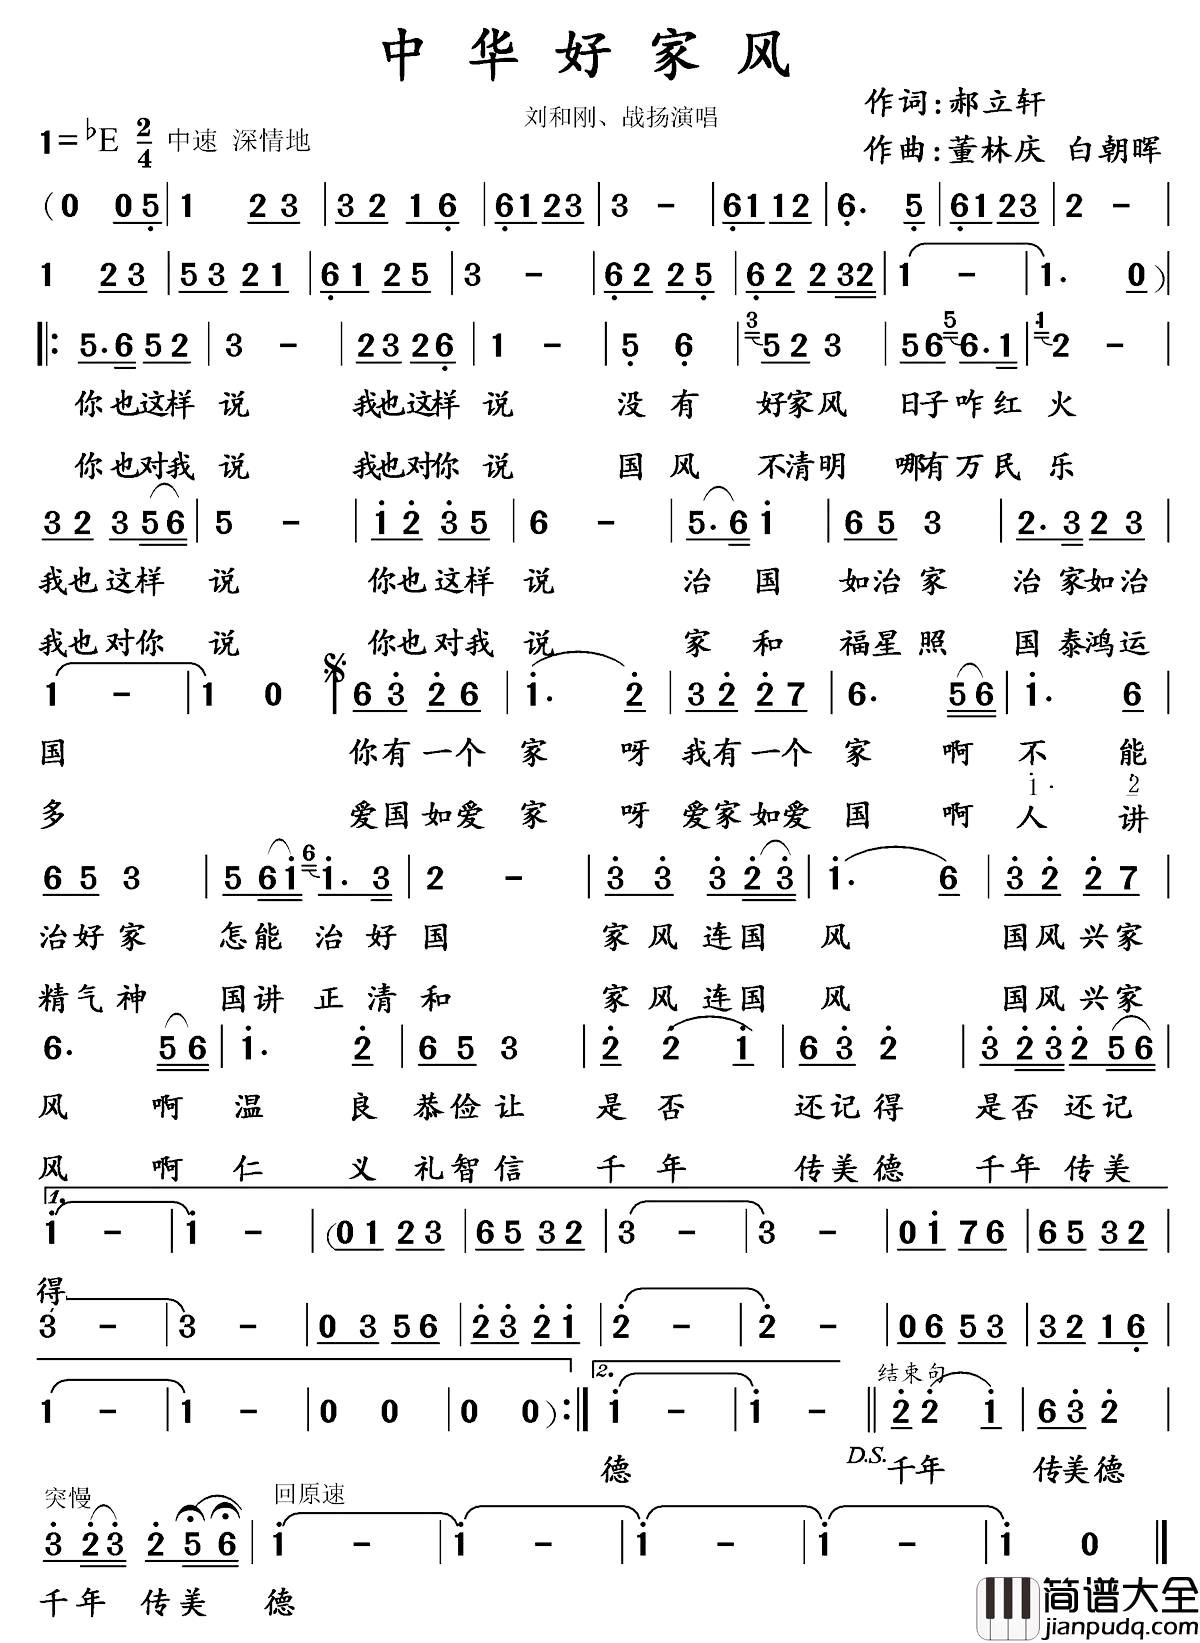 中华好家风
刘和刚、战扬演唱
作词:郝立轩
1=♭E 2/4 中速 深情地
作曲:董林庆 白朝晖
(0 05|1 23|32 16|6123|3 -|6112|6. 5|6123|2 -|
1 23|53 21|61 25|3 -|62 25|62 232|1 -|1. 0)|
|:5.6 52|3 -|2326|1 -|5 6|3 52 3|56 5 6.1|1 2 -|
你也这样 说 我也这样 说 没有 好家风 日子咋红 火
你也对我 说 我也对你 说 国风 不清明 哪有万民 乐
32 356|5 -|12 35|6 -|5.6 1|65 3|2.3 23|
我也这样 说 你也这样 说 治国 如治家 治家如治
我也对你 说 你也对我 说 家和 福星照 国泰鸿运
1 -|1 0|63 26|1. 2|32 27|6. 56|1. 6|
国 你有一个 家 呀 我有一个 家 啊 不 能
1. 2
多 爱国如爱 家 呀 爱家如爱 国 啊 人 讲
65 3|561 6 1.3|2 -|33 323|1. 6|32 27|
治好家 怎能治好国 家风连国 风 国风兴家
精气神 国讲正清和 家风连国 风 国风兴家
6. 56|1. 2|65 3|2 2 1|63 2|323 256|
风 啊 温 良 恭俭让 是否 还记得 是否还记
风 啊 仁 义 礼智信 千年 传美德 千年传美
1.
1 -|1 -|(01 23|65 32|3 -|3 -|01 76|65 32|
得
3 -|3 -|03 56|23 21|2 -|2 -|06 53|32 16|
2. 结束句
1 -|1 -|0 0|0 0):|1 -|1 -||2 2 1|63 2|
德 D.S. 千年 传美德
突慢 回原速
3 23 2 56|1 -|1 -|1 -|1 -|1 0||
千年 传美 德
简谱大全
jianpudq.com